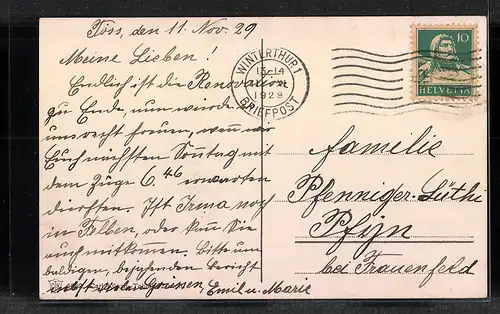 Töss, den 11. Nov. 29
Meine Lieben!
Endlich ist die Renovation
zu Ende, nun würde
uns recht freuen, wenn wir
Euch nächsten Sonntag mit
dem Zuge 6.46 erwarten
dürften. Ist Irma noch
in Felben, oder kann Sie
auch mitkommen. Bitte um
baldigen, bejahenden Bericht
nebst vielen Grüssen, Emil u. Marie
WINTERTHUR 1
13-14
1929
BRIEFPOST
10
HELVETIA
Familie
Pfenniger-Lüthi
Pfyn
bei Frauenfeld